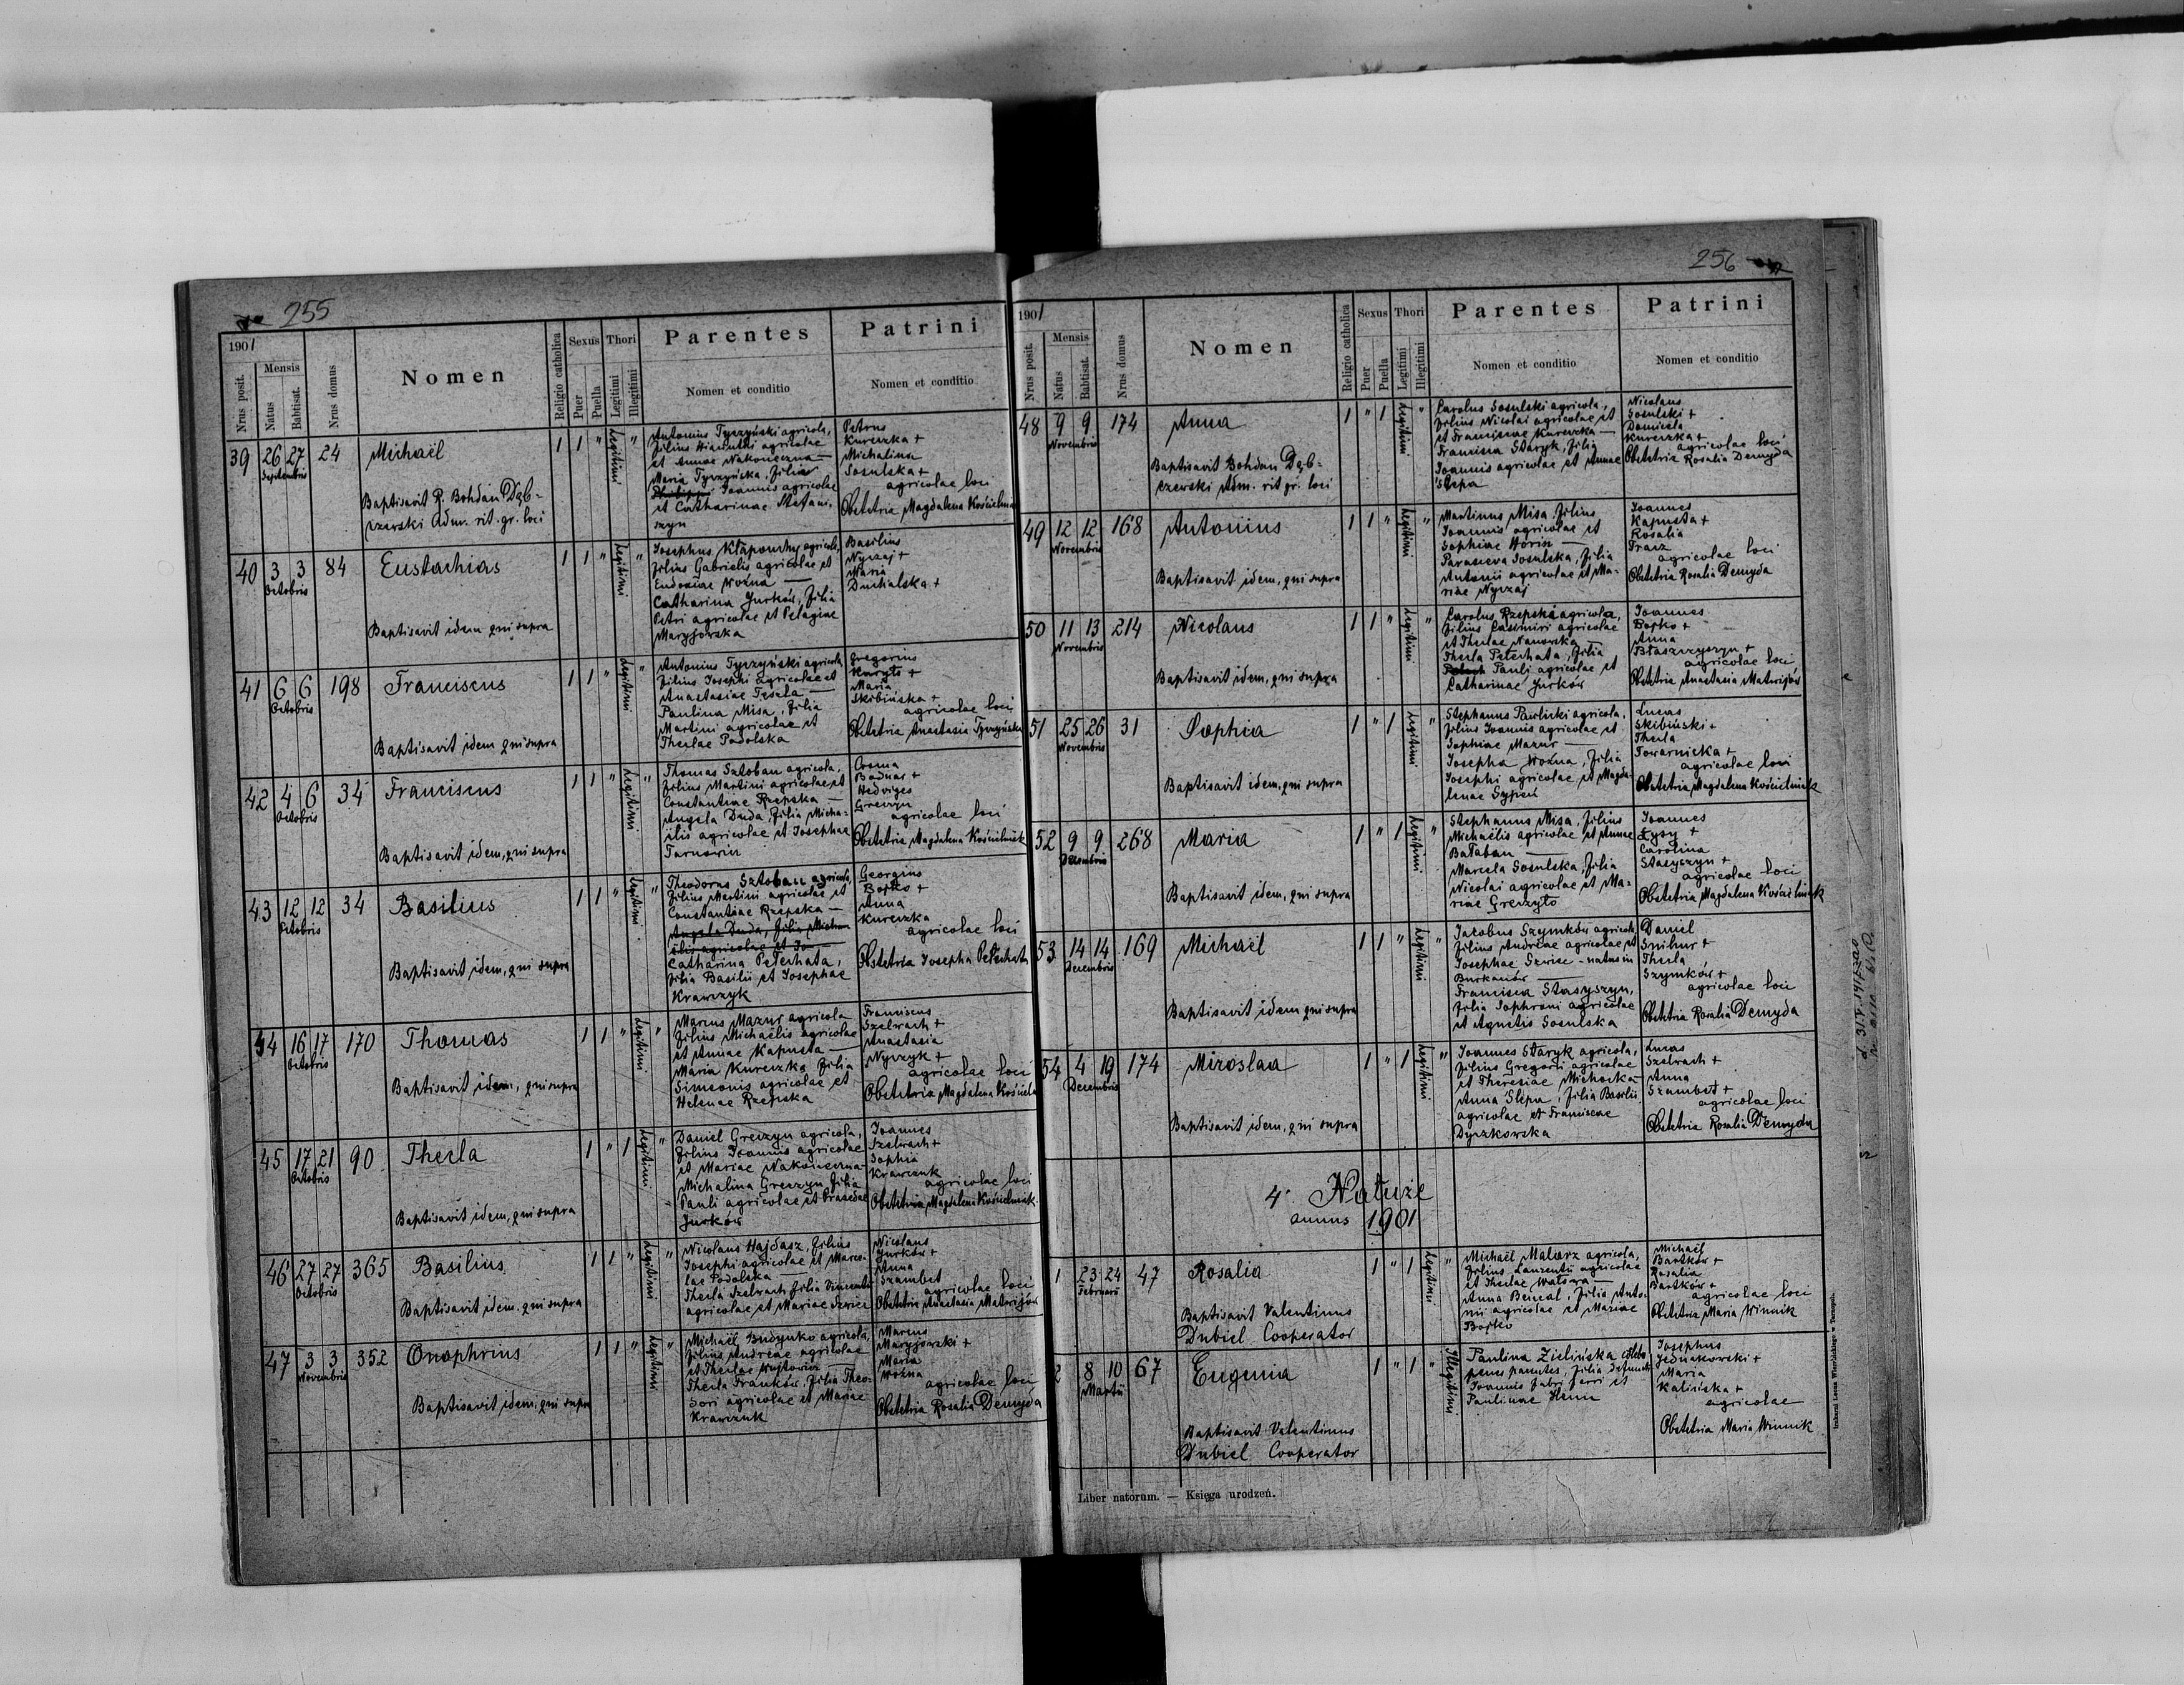 255
1901
Nrus posit.
Mensis
Natus
Babtisat.
Nrus domus
Nomen
Religio catholica
Sexus
Puer
Puella
Thori
Legitimi
Illegitimi
Parentes
Nomen et conditio
Patrini
Nomen et conditio
39 26 27 24 Michaël 1 1 " Legitimi "
Septembris
Baptisavit R. Bohdan Dąb-
czewski Adm. rit. gr. loci
Antonius Tyrzyński agricola,
filius Hiacinthi agricolae
et Annae Nakoneczna —
Maria Tyrzyńska, filia
Philippi Joannis agricolae
et Catharinae Stefani-
szyn
Petrus
Kureczka +
Michalina
Sosulska +
agricolae loci
Obstetrix Magdalena Kościelniak
40 3 3 84 Eustachias 1 1 " Legitimi "
Octobris
Baptisavit idem qui supra
Josephus Kłapouchy agricola,
filius Gabrielis agricolae et
Eudoxiae Woźna —
Catharina Jurków, filia
Petri agricolae et Pelagiae
Maryjowska
Basilius
Nyczaj +
Maria
Duchalska +
41 6 6 198 Franciscus 1 1 " Legitimi "
Octobris
Baptisavit idem qui supra
Antonius Tyrzyński agricola
filius Josephi agricolae et
Anastasiae Teszla —
Paulina Misa, filia
Martini agricolae et
Theclae Podolska
Gregorius
Kuryło +
Maria
Skibińska +
agricolae loci
Obstetrix Anastasia Tyrzyńska
42 4 6 34 Franciscus 1 1 " Legitimi "
Octobris
Baptisavit idem, qui supra
Thomas Sztoban agricola,
filius Martini agricolae et
Constantiae Rzepska —
Angela Duda, filia Micha-
ëlis agricolae et Josephae
Tarnowicz
Cosma
Bodnar +
Hedviges
Greczyn
agricolae loci
Obstetrix Magdalena Kościelniak
43 12 12 34 Basilius 1 1 " Legitimi "
Octobris
Baptisavit idem, qui supra
Theodorus Sztoban agricola,
filius Martini agricolae et
Constantiae Rzepska —
Angela Duda, filia Micha-
ëlis agricolae et Jo-
Catharina Peterhata,
filia Basilii et Josephae
Krawczyk
Georgius
Bojko +
Anna
Kureczka
agricolae loci
Obstetrix Josepha Peterhata
44 16 17 170 Thomas 1 1 " Legitimi "
Octobris
Baptisavit idem, qui supra
Marcus Mazur agricola
filius Michaëlis agricolae
et Annae Kapusta —
Maria Kureczka filia
Simeonis agricolae et
Helenae Rzepska
Franciscus
Szelwach +
Anastasia
Nyczyk +
agricolae loci
Obstetrix Magdalena Kościel
45 17 21 90 Thecla 1 " 1 Legitimi "
Octobris
Baptisavit idem, qui supra
Daniel Greczyn agricola,
filius Joannis agricolae
et Mariae Nakoneczna
Michalina Greczyn filia
Pauli agricolae et Praxedae
Jurków
Joannes
Szelwach +
Sophia
Krawczuk
agricolae loci
Obstetrix Magdalena Kościelniak
46 27 27 365 Basilius 1 1 " Legitimi "
Octobris
Baptisavit idem, qui supra
Nicolaus Hajdasz, filius
Josephi agricolae et Marce-
lae Podolska —
Thecla Szelwach filia Vincentii
agricolae et Mariae Szwiec
Nicolaus
Jurków +
Anna
Szambet
agricolae loci
Obstetrix Anastasia Matwijów
47 3 3 352 Onophrius 1 1 " Legitimi "
Novembris
Baptisavit idem, qui supra
Michaël Budzynko agricola,
filius Andreae agricolae
et Theclae Wujtowicz —
Thecla Franków, filia Theo-
dori agricolae et Mariae
Krawczuk
Marcus
Maryjowski +
Maria
Woźna
agricolae loci
Obstetrix Rosalia Demyda
256
1901
Nrus posit.
Mensis
Natus
Babtisat.
Nrus domus
Nomen
Religio catholica
Sexus
Puer
Puella
Thori
Legitimi
Illegitimi
Parentes
Nomen et conditio
Patrini
Nomen et conditio
48 9 9 174 Anna 1 " 1 Legitimi "
Novembris
Baptisavit Bohdan Dąb-
czewski Adm. rit gr. loci
Carolus Sosulski agricola,
filius Nicolai agricolae et
et Franciscae Kureczka —
Francisca Staryk, filia
Joannis agricolae et Annae
Slepa
Nicolaus
Sosulski +
Domicela
Kureczka +
agricolae loci
Obstetrix Rosalia Demyda
49 12 12 168 Antonius 1 1 " Legitimi "
Novembris
Baptisavit idem, qui supra
Martinus Misa, filius
Joannis agricolae et
Sophiae Horin —
Parasceva Sosulska, filia
Antonii agricolae et Ma-
riae Nyczaj
Joannes
Kapusta +
Rosalia
Tracz
agricolae loci
Obstetrix Rosalia Demyda
50 11 13 214 Nicolaus 1 1 " Legitimi "
Novembris
Baptisavit idem, qui supra
Carolus Rzepska agricola,
filius Casimiri agricolae
et Theclae Nanowska —
Thecla Peterhata, filia
Pauli agricolae et
Catharinae Jurków
Joannes
Bojko +
Anna
Błaszczyszyn +
agricolae loci
Obstetrix Anastasia Matwijów
51 25 26 31 Sophia 1 " 1 Legitimi "
Novembris
Baptisavit idem, qui supra
Stephanus Pawlicki agricola,
filius Joannis agricolae et
Sophiae Mazur —
Josepha Woźna, filia
Josephi agricolae et Magda-
lenae Sypeń
Lucas
Skibiński +
Thecla
Towarnicka +
agricolae loci
Obstetrix Magdalena Kościelniak
52 9 9 268 Maria 1 " 1 Legitimi "
Decembris
Baptisavit idem, qui supra
Stephanus Misa, filius
Michaëlis agricolae et Annae
Bałaban —
Marcela Sosulska, filia
Nicolai agricolae et Ma-
riae Greczyło
Joannes
Łysy +
Carolina
Stasyszyn +
agricolae loci
Obstetrix Magdalena Kościelniak
53 14 14 169 Michaël 1 1 " Legitimi "
Decembris
Baptisavit idem qui supra
Jacobus Szymków agricola,
filius Andreae agricolae et
Josephae Szwiec - natus in
Burkanów —
Francisca Stasyszyn,
filia Sophroni agricolae
et Agnetis Sosulska
Daniel
Smihur +
Thecla
Szymków +
agricolae loci
Obstetrix Rosalia Demyda
54 4 19 174 Miroslaa 1 " 1 Legitimi "
Decembris
Baptisavit idem, qui supra
Joannes Staryk agricola,
filius Gregorii agricolae
et Theresiae Michocka -
Anna Slepa, filia Basilii
agricolae et Franciscae
Dyczkowska
Lucas
Szelwach +
Anna
Szambet +
agricolae loci
Obstetrix Rosalia Demyda
4. Natuże
annus 1901
1 23 24 47 Rosalia 1 " 1 Legitimi "
Februarii
Baptisavit Valentinus
Dubiel Cooperator
Michaël Malarz agricola,
filius Laurentii agricolae
et Theclae Watowa —
Anna Bencal, filia Anto-
nii agricolae et Mariae
Bojko
Michaël
Bartków +
Rosalia
Bartków +
agricolae loci
Obstetrix Maria Winnik
2 8 10 67 Eugenia 1 " 1 " Illegitimi
Martii
Baptisavit Valentinus
Dubiel Cooperator
Paulina Zielińska coelebs
penes parentes, filia defuncti
Joannis fabri ferri et
Paulinae Hunn
Josephus
Jednakowski +
Maria
Kalińska +
agricolae
Obstetrix Maria Winnik
Liber natorum. — Księga urodzeń.